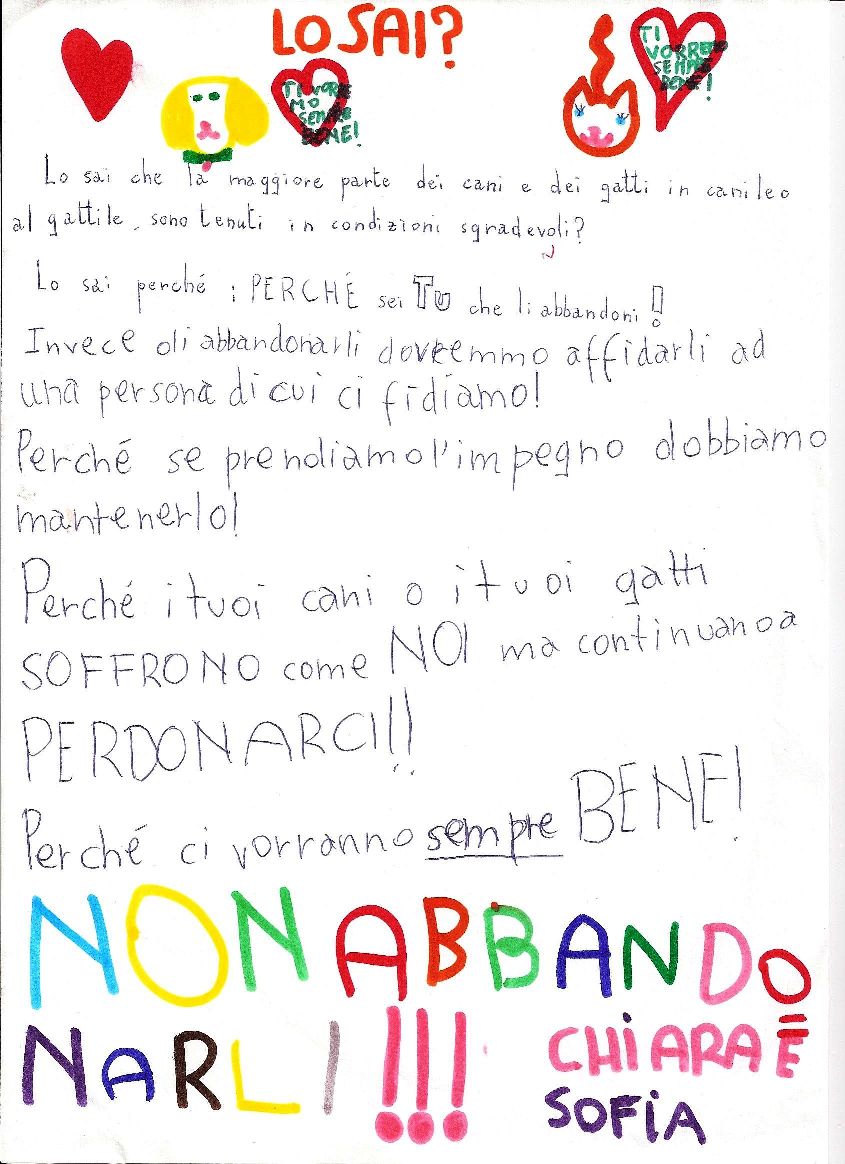 LO SAI?
TI VORRE
MO
SEMPRE
BENE!
TI
VORRE
SEMPRE
BENE!
Lo sai che la maggiore parte dei cani e dei gatti in canile o
al gattile, sono tenuti in condizioni sgradevoli?
Lo sai perché : PERCHÉ sei TU che li abbandoni!
Invece di abbandonarli dovremmo affidarli ad
una persona di cui ci fidiamo!
Perché se prendiamo l'impegno dobbiamo
mantenerlo!
Perché i tuoi cani o i tuoi gatti
SOFFRONO come NOI ma continuano a
PERDONARCI!!
Perché ci vorranno sempre BENE!
NON ABBANDO=
NARLI!!!
CHiARA E
SOFiA